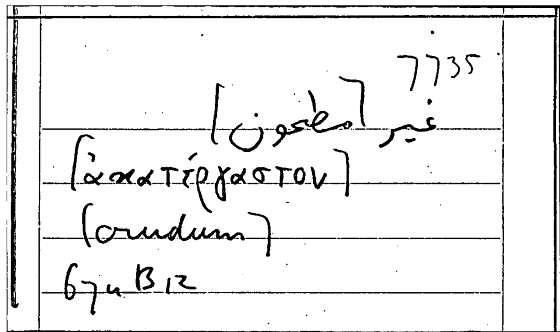 7735
غير [مطحون]
[ἀκατέργαστον]
[crudum]
674 B 12